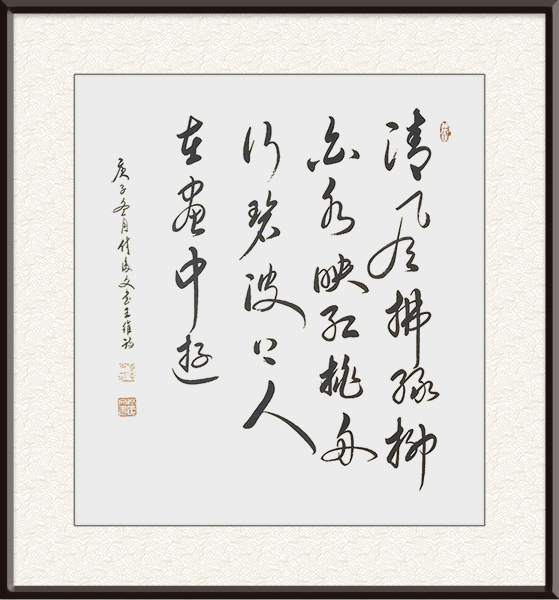 清风拂绿柳
白水映红桃舟
行碧波上人
在画中游
庚子冬月付文书王维诗